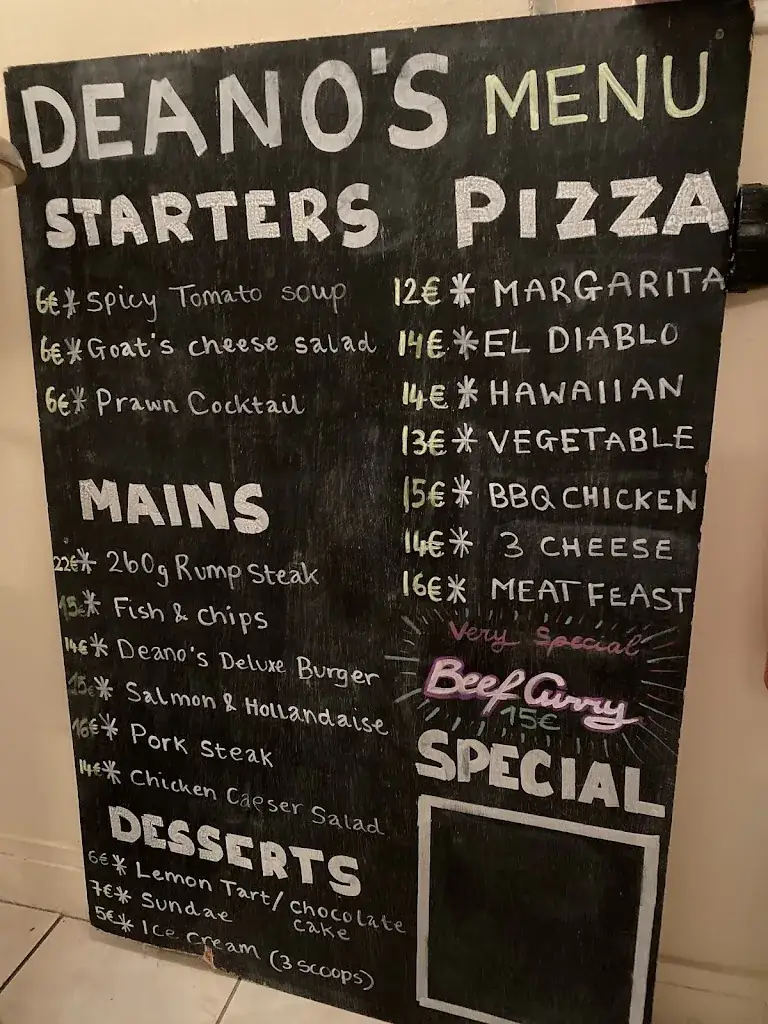 DEANO'S MENU
STARTERS
6€* Spicy Tomato soup
6€* Goat's cheese salad
6€* Prawn Cocktail
MAINS
22€* 260g Rump steak
15€* Fish & chips
14€* Deano's Deluxe Burger
15€* Salmon & Hollandaise
16€* Pork steak
14€* Chicken Caeser Salad
DESSERTS
6€* Lemon Tart/ chocolate
cake
7€* Sundae
5€* Ice cream (3 scoops)
PIZZA
12€* MARGARITA
14€* EL DIABLO
14€* HAWAIIAN
13€* VEGETABLE
15€* BBQ CHICKEN
14€* 3 CHEESE
16€* MEAT FEAST
Very Special
Beef Curry
15€
SPECIAL